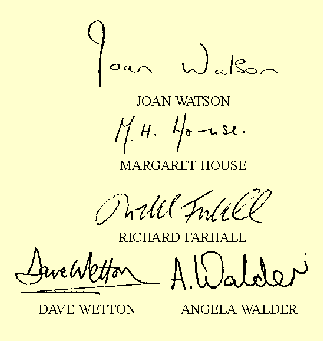 Joan Watson
JOAN WATSON
M.H. House.
MARGARET HOUSE
RICHARD FARHALL
Dave Wetton A. Walder
DAVE WETTON ANGELA WALDER